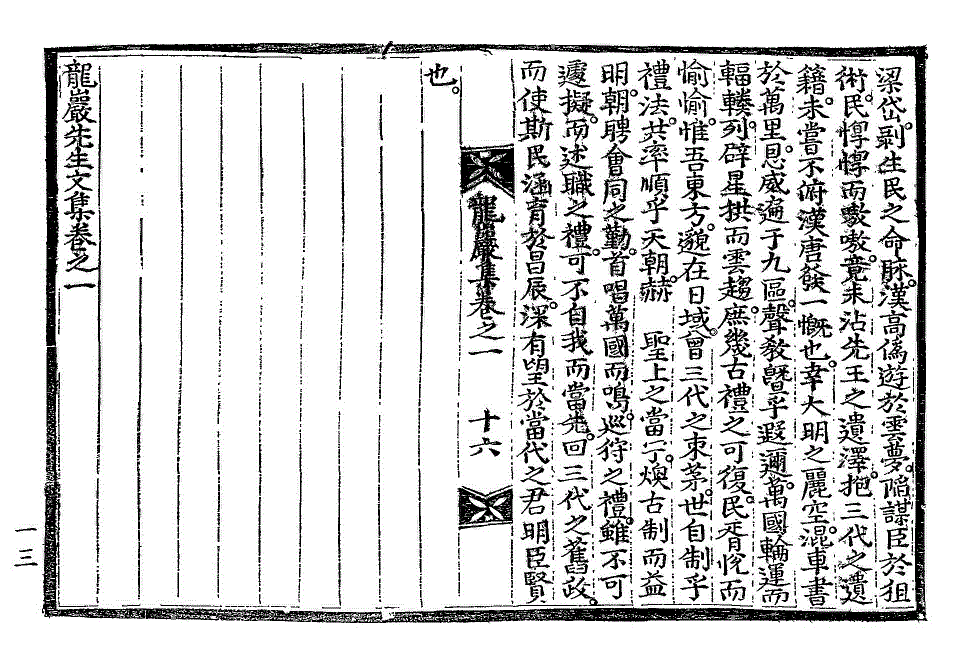 梁岱。剥生民之命脉。漢高僞遊於雲夢。陷謀臣於狙
術。民惸惸而嗷嗷。竟未沾先王之遺澤。抱三代之遺
籍。未嘗不俯漢唐發一慨也。幸大明之麗空。混車書
於萬里。恩威遍于九區。聲敎曁乎遐邇。萬國輪運而
輻轃。列辟星拱而雲趨。庶幾古禮之可復。民胥悅而
愉愉。惟吾東方。邈在日域。曾三代之束茅。世自制乎
禮法。共率順乎天朝。赫 聖上之當宁。煥古制而益
明。朝聘會同之勤。首唱萬國而鳴。巡狩之禮。雖不可
遽擬。而述職之禮。可不自我而當先。回三代之舊政。
而使斯民涵育於昌辰。深有望於當代之君明臣賢
龍巖集卷之一 十六
也。
龍巖先生文集卷之一
一三